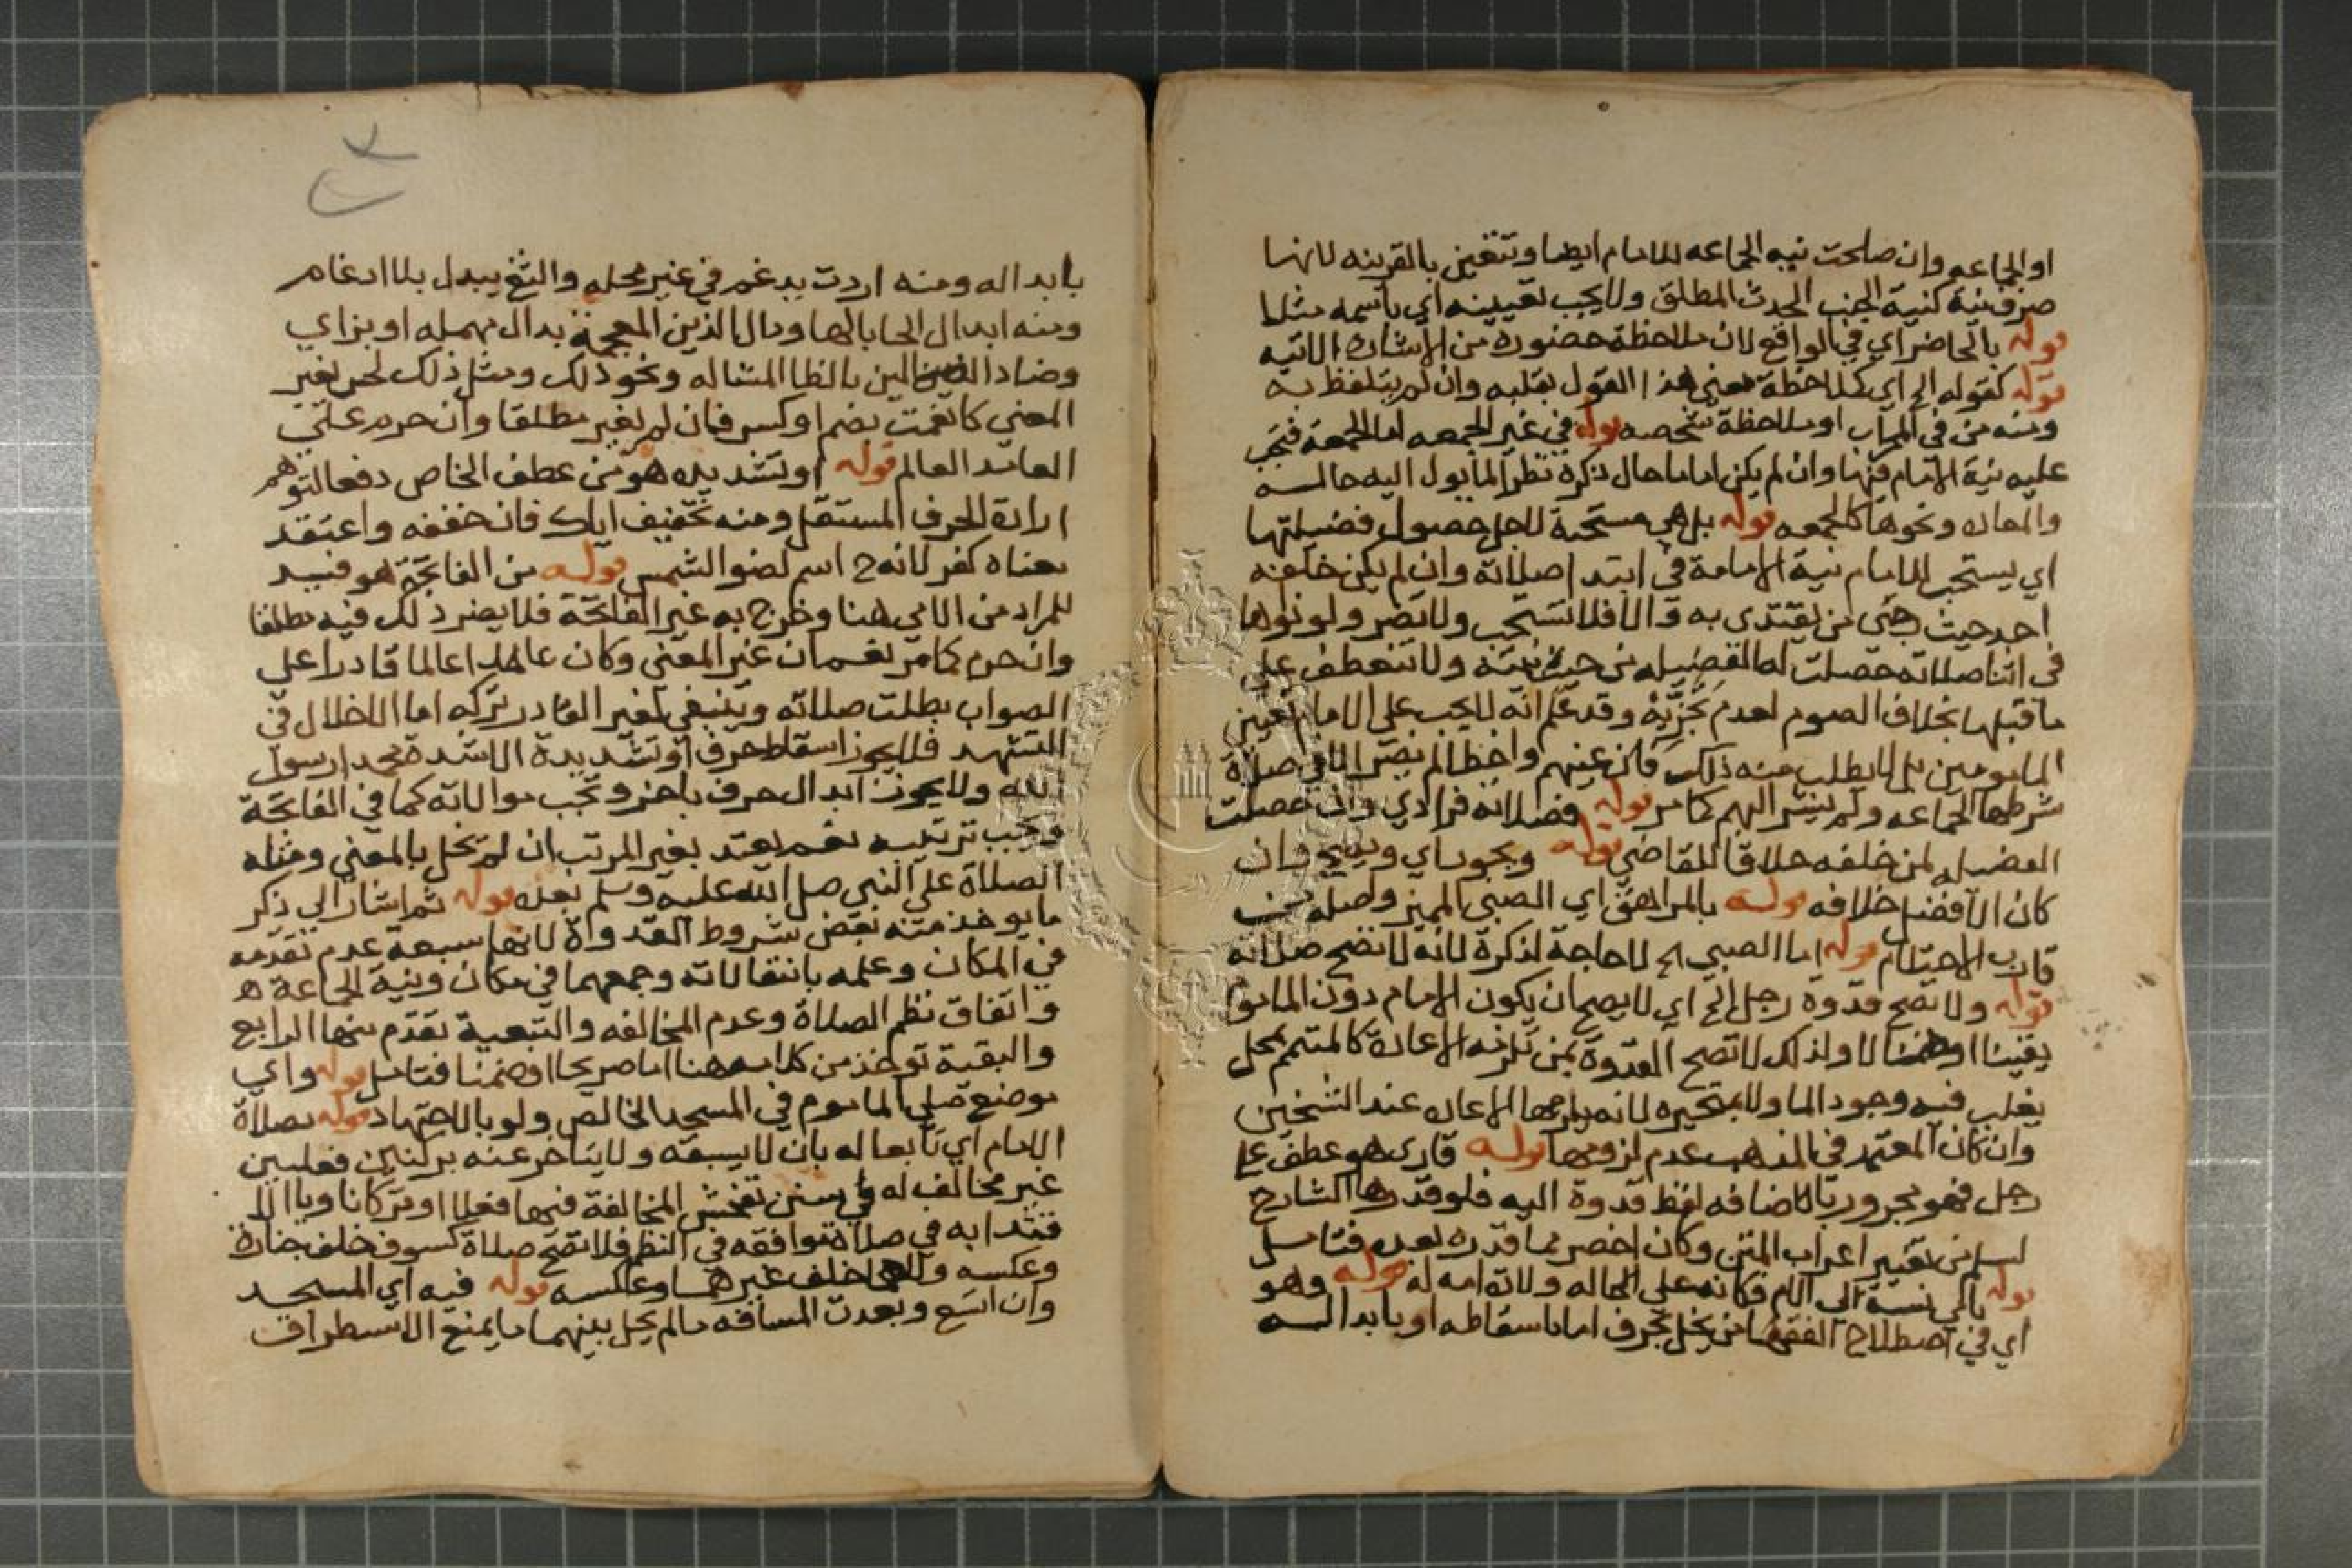 او الجماعه وان صلحت نيه الجماعه للامام ايضا وتتعين بالقرينه لانها
صرف نية كنية الجنب الحدث المطلق ولا يجب تعيينه اي باسمه مثلا
قوله بالحاضر اي في الواقع لان ملاحظة حضوره من الاشاره الاتيه
قوله كقوله الخ اي كملاحظة معني هذا القول بقلبه وان لم يتلفظ به
ومنه من في المحراب او ملاحظة شخصه قوله في غير الجمعه اما الجمعة فتجب
عليه نية الامام فيها وان لم يكن اماما حال ذكره نظرا لما يول اليه حاله
والمعاده ونحوها كالجمعه قوله بل هي مستحبة لاجل حصول فضيلتها
اي يستحب للامام نية الامامة في ابتدا صلاته وان لم يكن خلفه
احد حيث رجي من يقتدي به والا فلا تستحب ولا تضر ولو نواها
في اثنا صلاته حصلت له الفضيله من حين نيته ولا تنعطف علي
ما قبلها بخلاف الصوم لعدم تجزيه وقد علم انه لا يجب علي الامام تعيين
المامومين بل لا يطلب منه ذلك فان عينهم واخطا لم يضر الا في صلاة
شرطها الجماعه ولم يشر اليهم كما مر قوله فصلاته فرادي وان حصلت
الفضيله لمن خلفه خلافا للقاضي قوله وبجوس اي ويصح وان
كان الافضل خلافه قوله بالمراهق اي الصبي المميز واصله من
قارب الاحتلام قوله اما الصبي الخ لا حاجة لذكره لانه لا تصح صلاته
قوله ولا تصح قدوة رجل الخ اي لا يصح ان يكون الامام دون الماموم
يقينا او احتمالا ولذلك لا تصح القدوة بمن تلزمه الاعادة كالمتيمم بمحل
يغلب فيه وجود الما ولا بمتحيره لانه يلزمها الاعاده عند الشيخين
وان كان المعتمد في المذهب عدم لزومها قوله قاري هو عطف علي
رجل فهو مجرور بالاضافه لفظ قدوة اليه فلو قدرها الشارح
لسلم من تغيير اعراب المتن وكان اخصر مما قدره بعده فتامل
قوله بامي نسبة الي الام فكانه علي الحاله ولادة امه له قوله وهو
اي في اصطلاح الفقها من يخل بحرف اما باسقاطه او بابداله
بابداله ومنه اردت يدغم في غير محله والثغ يبدل بلا ادغام
ومنه ابدال الحا بالها ودال الذين المعجمة بدال مهمله او بزاي
وضاد الضالين بالظا المشاله ونحو ذلك ومثل ذلك لحن يغير
المعني كانعمت بضم او كسر فان لم يغير مطلقا وان حرم علي
العامد العالم قوله او تشديده هو من عطف الخاص دفعا لتوهم
ارادة الحرف المستقل ومنه تخفيف اياك فان خففه واعتقد
معناه كفر لانه ح اسم لضو الشمس قوله من الفاتحة هو قيد
للمراد من الامي هنا وخرج به غير الفاتحة فلا يضر ذلك فيه مطلقا
وان حرم كما مر نعم ان غير المعني وكان عامدا عالما قادرا علي
الصواب بطلت صلاته وينبغي لغير القادر تركه اما الاخلال في
التشهد فلا يجوز اسقاط حرف او تشديدة الا شدة محمدا رسول
الله ولا يجوز ابدال حرف باخر وتجب موالاته كما في الفاتحة
ويجب ترتيبه نعم يعتد بغير المرتب ان لم يخل بالمعني ومثله
الصلاة علي النبي صلي الله عليه وسلم بعده قوله ثم اشار الي ذكر
ما يوخذ منه بعض شروط القدوة لانها سبعة عدم تقدمه
في المكان وعلمه بانتقالاته وجمعهما في مكان ونية الجماعة ه
واتفاق نظم الصلاة وعدم المخالفه والتبعية تقدم منها الرابع
والبقية توخذ من كلامه هنا اما صريحا او ضمنا فتامل قوله واي
موضع صلي الماموم في المسجد الخالص ولو بالاجتهاد قوله بصلاة
الامام اي تابعا له بان لا يسبقه ولا يتاخر عنه بركنين فعليين
غير مخالف له في سنن تفحش المخالفة فيها فعلا او تركا ناويا الا
قتدا به في صلاة توافقه في النظم فلا تصح صلاة كسوف خلف جنازة
وعكسه ولا هما خلف غيرهما وعكسه قوله فيه اي المسجد
وان اتسع وبعدت المسافه مالم يحل بينهما ما يمنع الاستطراق